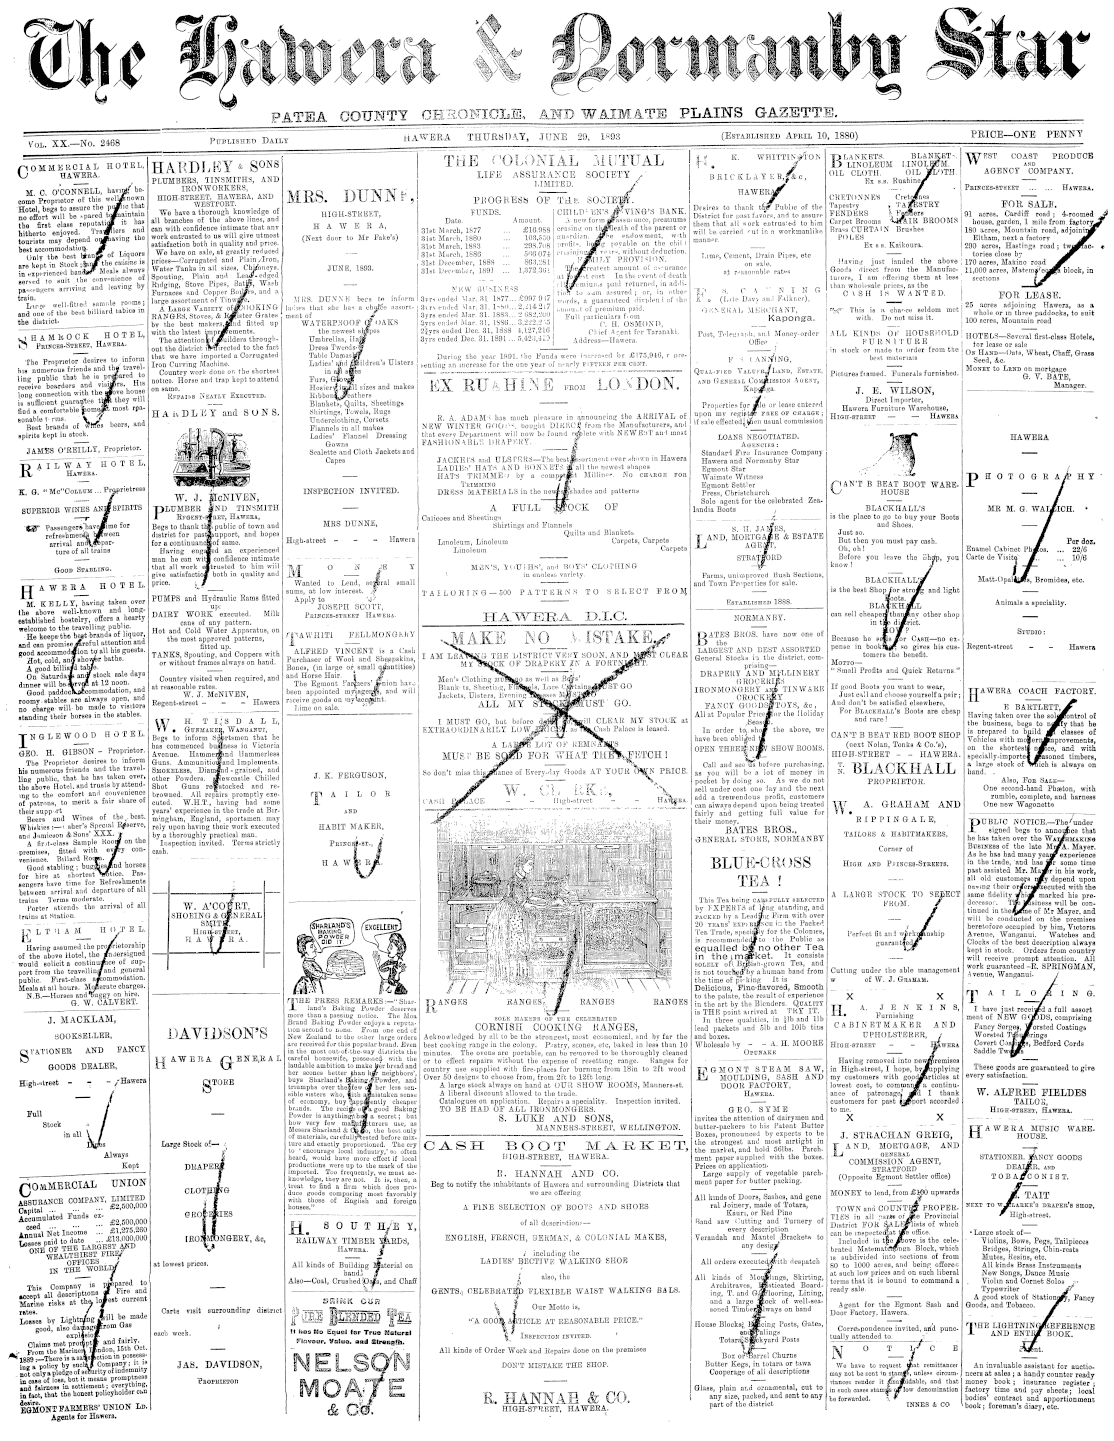 The Hawera & Normanby Star
PATEA COUNTY CHRONICLE, AND WAIMATE PLAINS GAZETTE.
VOL. XX.—No. 2468
PUBLISHED DAILY
HAWERA THURSDAY, JUNE 29, 1893
(ESTABLISHED APRIL 10, 1880)
PRICE—ONE PENNY
COMMERCIAL HOTEL,
HAWERA.
M. C. O'CONNELL, having be-
come Proprietor of this well-known
Hotel, begs to assure the public that
no effort will be spared to maintain
the first class reputation
hitherto enjoyed. Travellers and
tourists may depend on having the
best accommodation.
Only the best brands of Liquors
are kept in Stock; and the cuisine is
in experienced hands. Meals always
served to suit the convenience of
passengers arriving and leaving by
train.
Large well-fitted sample rooms;
and one of the best billiard tables in
the district.
SHAMROCK HOTEL,
PRINCES-STREET, HAWERA.
The Proprietor desires to inform
his numerous friends and the travel-
ling public that he is prepared to
receive boarders and visitors. His
long connection with the above house
is sufficient guarantee that they will
find a comfortable home at most rea-
sonable terms.
Best brands of wines beers, and
spirits kept in stock.
JAMES O'REILLY, Proprietor.
RAILWAY HOTEL,
HAWERA.
K. G. "Mc"COLLUM ... Proprietress
SUPERIOR WINES AND SPIRITS
Passengers have time for
refreshments between
arrival and depar-
ture of all trains
GOOD STABLING.
HAWERA HOTEL.
M. KELLY, having taken over
the above well-known and long-
established hostelry, offers a hearty
welcome to the travelling public.
He keeps the best brands of liquor,
and can promise careful attention and
good accommodation to all his guests.
Hot, cold, and shower baths.
A good billiard table.
On Saturday and stock sale days
dinner will be served at 12 noon.
Good paddock accommodation, and
roomy stables are always open, and
no charge will be made to visitors
standing their horses in the stables.
INGLEWOOD HOTEL.
GEO. H. GIBSON - Proprietor.
The Proprietor desires to inform
his numerous friends and the travel-
ling public, that he has taken over,
the above Hotel, and trusts by attend-
ing to the comfort and convenience
of patrons, to merit a fair share of
their support
Beers and Wines of the best.
Whiskies:—Usher's Special Reserve,
and Jamieson & Sons' XXX.
A first-class Sample Room on the
premises, fitted with every con-
venience. Billiard Room.
Good stabling; buggies and horses
for hire at shortest notice. Pas-
sengers have time for Refreshments
between arrival and departure of all
trains Terms moderate.
Porter attends the arrival of all
trains at Station.
ELTHAM HOTEL.
Having assumed the proprietorship
of the above Hotel, the undersigned
would solicit a continuance of sup-
port from the travelling and general
public. First-class accommodation.
Meals at all hours. Moderate charges.
N.B.—Horses and buggy on hire.
G. W. CALVERT.
J. MACKLAM,
BOOKSELLER,
STATIONER AND FANCY
GOODS DEALER,
High-street - - - Hawera
Full
Stock
in all
Lines
Always
Kept
COMMERCIAL UNION
ASSURANCE COMPANY, LIMITED
Capital ... ... ... £2,500,000
Accumulated Funds ex-
ceed ... ... ... £2,500,000
Annual Net Income ... £1,275,290
Losses paid to date ... £13,000,000
ONE OF THE LARGEST AND
WEALTHIEST FIRE
OFFICES
IN THE WORLD
This Company is prepared to
accept all descriptions of Fire and
Marine risks at the lowest current
rates.
Losses by Lightning will be made
good, also damage from Gas
explosion.
Claims met promptly and fairly.
From the Mariner, London, 15th Oct.
1889:—There is a satisfaction in possess-
ing a policy by such a Company; it is
not only a pledge of security of indemnity
in case of loss, but it means promptness
and fairness in settlement; everything,
in fact, that the honest policyholder can
desire.
EGMONT FARMERS' UNION LD.
Agents for Hawera.
HARDLEY & SONS
PLUMBERS, TINSMITHS, AND
IRONWORKERS,
HIGH-STREET, HAWERA, AND
WESTORT.
We have a thorough knowledge of
all branches of the above lines, and
can with confidence intimate that any
work entrusted to us will give utmost
satisfaction both in quality and price.
We have on sale, at greatly reduced
prices—Corrugated and Plain Iron,
Water Tanks in all sizes, Chimneys,
Spouting, Plain and Lead-edged
Ridging, Stove Pipes, Baths, Wash
Furnaces and Copper Boilers, and a
large assortment of Tinware
A LARGE VARIETY of COOKING
RANGES, Stoves, & Register Grates
by the best makers, and fitted up
with the latest improvements.
The attention of Builders through-
out the district is directed to the fact
that we have imported a Corrugated
Iron Curving Machine.
Country work done on the shortest
notice. Horse and trap kept to attend
on same.
REPAIRS NEATLY EXECUTED.
HARDLEY AND SONS.
W. J. McNIVEN,
PLUMBER AND TINSMITH
REGENT-STREET, HAWERA,
Begs to thank the public of town and
district for past support, and hopes
for a continuance of same.
Having engaged an experienced
man he can with confidence intimate
that all work entrusted to him will
give satisfaction both in quality and
price.
PUMPS and Hydraulic Rams fitted
up
DAIRY WORK executed. Milk
cans of any pattern.
Hot and Cold Water Apparatus, on
the most approved patterns,
fitted up.
TANKS, Spouting, and Coppers with
or without frames always on hand.
Country visited when required, and
at reasonable rates.
W. J. McNIVEN,
Regent-street - - Hawera
W. H. TISDALL,
GUNMAKER, WANGANUI,
Begs to inform Sportsmen that he
has commenced business in Victoria
Avenue. Hammer and Hammerless
Guns. Ammunition and Implements.
SMOKELESS, Diamond-grained, and
other Powders. Portable Chilled
Shot Guns restocked and re-
browned. All repairs promptly exe-
cuted. W.H.T., having had some
years' experience in the trade at Bir-
mingham, England, sportsmen may
rely upon having their work executed
by a thoroughly practical man.
Inspection invited. Terms strictly
cash.
W. A'COURT,
SHOEING & GENERAL
SMITH,
HIGH-STREET,
HAWERA.
DAVIDSON'S
HAWERA GENERAL
STORE
Large Stock of—
DRAPERY
CLOTHING
GROCERIES
IRONMONGERY, &c,
at lowest prices.
Carts visit surrounding district
each week.
JAS. DAVIDSON,
PROPRIETOR
MRS. DUNNE,
HIGH-STREET,
HAWERA,
(Next door to Mr Fake's)
JUNE, 1893.
MRS. DUNNE begs to inform
ladies that she has a choice assort-
ment of
WATERPROOF CLOAKS
in the newest shapes
Umbrellas, Hats
Dress Tweeds
Table Damasks
Ladies' and Children's Ulsters
in
Furs, Gloves
Hosiery in all sizes and makes
Ribbons, Feathers
Blankets, Quilts, Sheetings
Shirtings, Towels, Rugs
Underclothing, Corsets
Flannels in all makes
Ladies' Flannel Dressing
Gowns
Sealette and Cloth Jackets and
Capes
INSPECTION INVITED.
MRS DUNNE,
High-street - - Hawera
MONEY
Wanted to Lend, several small
sums, at low interest.
Apply to
JOSEPH SCOTT,
PRINCES-STREET HAWERA.
TAWHITI FELLMONGERY
ALFRED VINCENT is a Cash
Purchaser of Wool and Sheepskins,
Bones, (in large or small quantities)
and Horse Hair
The Egmont Farmers' Union have
been appointed my agents, and will
receive goods on my account.
Lime on sale.
J. K. FERGUSON,
TAILOR
AND
HABIT MAKER,
PRINCES-ST.,
HAWERA
SHARLAND'S
BAKING
POWDER
DID IT.
EXCELLENT
THE PRESS REMARKS:—"Shar-
land's Baking Powder deserves
more than a passing notice. The Moa
Brand Baking Powder enjoys a reputa-
tion second to none. From one end of
New Zealand to the other large orders
are received for this popular brand. Even
in the most out-of-the-way districts the
careful housewife, possessed with the
laudable ambition to make her bread and
her scones better than her neighbors',
buys Sharland's Baking Powder, and
triumphs over those of her less sen-
sible sisters who, with a mistaken sense
of economy, buy apparently cheaper
brands. The recipe of good Baking
Powder is anything but a secret; but
how very few manufacturers use, as
Messrs Sharland & Co. do, the best only
of materials, carefully tested before mix-
ture and exactly proportioned. The cry
to 'encourage local industry,' so often
heard, would have more effect if local
productions were up to the mark of the
imported. Too frequently, we must ac-
knowledge, they are not. It is, then, a
treat to find a firm which does pro-
duce goods comparing most favorably
with those of English and foreign
houses."
H. SOUTHEY,
RAILWAY TIMBER YARDS,
HAWERA.
All kinds of Building Material on
hand
Also—Coal, Crushed Oats, and Chaff
DRINK OUR
PURE BLENDED TEA
It has No Equal for True Natural
Flavour, Value, and Strength.
NELSON
MOATE
& CO.
THE COLONIAL MUTUAL
LIFE ASSURANCE SOCIETY
LIMITED.
PROGRESS OF THE SOCIETY
FUNDS.
Date. Amount.
31st March, 1877 ... £10,988
31st March, 1880 ... 103,550
31st March, 1883 ... 298,708
31st March, 1886 ... 566,074
31st December, 1888 ... 863,281
31st December, 1891 ... 1,372,361
NEW BUSINESS
3yrs ended Mar. 31, 1877... £997,947
3yrs ended Mar. 31, 1880... 2,114,217
3yrs ended Mar. 31, 1883... 2,682,200
3yrs ended Mar. 31, 1886... 3,222,225
2yrs ended Dec. 31, 1888 4,127,216
3yrs ended Dec. 31, 1891 ... 5,424,475
CHILDREN'S SAVINGS BANK.
A new form of assurance, premiums
ceasing on death of the parent or
guardian. Endowment, with
profits, being payable on the child
attaining, without deduction.
FAMILY PROVISION.
The greatest amount of assurance
at least cost. In the event of death
premiums paid returned, in addi-
tion to sum assured; or, in other
words, a guaranteed dividend of the
amount of premium paid
Full particulars from
C. H. OSMOND,
Chief Agent for Taranaki.
Address—Hawera.
During the year 1891, the Funds were increased by £175,946, repre-
senting an increase for the one year of nearly FIFTEEN PER CENT.
EX RUAHINE FROM LONDON.
R. A. ADAMS has much pleasure in announcing the ARRIVAL of
NEW WINTER GOODS, bought DIRECT from the Manufacturers, and
that every Department will now be found replete with NEWEST and most
FASHIONABLE DRAPERY.
JACKETS and ULSTERS—The best assortment ever shown in Hawera
LADIES' HATS AND BONNETS in all the newest shapes
HATS TRIMMED by a competent Milliner. NO CHARGE FOR
TRIMMING
DRESS MATERIALS in the newest shades and patterns
A FULL STOCK OF
Calicoes and Sheetings
Shirtings and Flannels
Quilts and Blankets
Linoleum, Linoleum
Linoleum
Carpets, Carpets
Carpets
MEN'S, YOUTHS', and BOYS' CLOTHING
in endless variety.
TAILORING—500 PATTERNS TO SELECT FROM
HAWERA D.I.C.
MAKE NO MISTAKE.
I AM LEAVING THE DISTRICT VERY SOON, AND MUST CLEAR
MY STOCK OF DRAPERY IN A FORTNIGHT
Men's Clothing must go as well as Boys'
Blankets, Sheeting, Flannels, Lace Curtains MUST GO
Jackets, Ulsters, Dresses
ALL MY STOCK MUST GO.
I MUST GO, but before going MUST CLEAR MY STOCK at
EXTRAORDINARILY LOW PRICES. Cash Palace is leased.
A LARGE LOT OF REMNANTS
MUST BE SOLD FOR WHAT THEY FETCH!
So don't miss this chance of Every-day Goods AT YOUR OWN PRICE.
W. CLARKE,
CASH PALACE - High-street - Hawera
RANGES RANGES, RANGES, RANGES
SOLE MAKERS OF THE CELEBRATED
CORNISH COOKING RANGES,
Acknowledged by all to be the strongest, most economical, and by far the
best cooking range in the colony. Pastry, scones, etc, baked in less than 10
minutes. The ovens are portable, can be removed to be thoroughly cleaned
or to effect repairs without the expense of resetting range. Ranges for
country use supplied with fire-places for burning from 18in to 2ft wood
Over 50 designs to choose from, from 2ft to 12ft long
A large stock always on hand at OUR SHOW ROOMS, Manners-st.
A liberal discount allowed to the trade
Catalogues on application. Repairs a speciality. Inspection invited.
TO BE HAD OF ALL IRONMONGERS.
S. LUKE AND SONS,
MANNERS-STREET, WELLINGTON.
CASH BOOT MARKET,
HIGH-STREET, HAWERA.
R. HANNAH AND CO.
Beg to notify the inhabitants of Hawera and surrounding Districts that
we are offering
A FINE SELECTION OF BOOTS AND SHOES
of all description:—
ENGLISH, FRENCH, GERMAN, & COLONIAL MAKES,
including the
LADIES' BECTIVE WALKING SHOE
also, the
GENTS.' CELEBRATED FLEXIBLE WAIST WALKING BALS.
Our Motto is,
"A GOOD ARTICLE AT REASONABLE PRICE."
INSPECTION INVITED.
All kinds of Order Work and Repairs done on the premises
DON'T MISTAKE THE SHOP.
R. HANNAH & CO.
HIGH-STREET, HAWERA.
H. K. WHITTINGTON
BRICKLAYER, &c,
HAWERA
Desires to thank the Public of the
District for past favors, and to assure
them that all work entrusted to him
will be carried out in a workmanlike
manner
Lime, Cement, Drain Pipes, etc
on sale,
at reasonable rates
(Late Davy and Falkner),
GENERAL MERCHANT,
Kaponga.
Post, Telegraph, and Money-order
Office
CANNING,
QUALIFIED VALUER, LAND, ESTATE,
AND GENERAL COMMISSION AGENT,
Kaponga.
Properties for sale or lease entered
upon my register FREE OF CHARGE;
if sale effected, then usual commission
LOANS NEGOTIATED.
AGENCIES:
Standard Fire Insurance Company
Hawera and Normanby Star
Egmont Star
Waimate Witness
Egmont Settler
Press, Christchurch
Sole agent for the celebrated Zea-
landia Boots
S. H. JAMES,
LAND, MORTGAGE & ESTATE
AGENT,
STRATFORD
Farms, unimproved Bush Sections,
and Town Properties for sale.
ESTABLISHED 1888.
NORMANBY.
BATES BROS. have now one of
the
LARGEST AND BEST ASSORTED
General Stocks in the district, com-
prising—
DRAPERY AND MILLINERY
GROCERIES
IRONMONGERY AND TINWARE
CROCKERY
FANCY GOODS, TOYS, &c.,
All at Popular Prices for the Holiday
Season.
In order to show the above, we
have been obliged to
OPEN THREE SHOW ROOMS.
Call and see us before purchasing,
as you will be a lot of money in
pocket by doing so. As we do not
sell under cost one day and the next
add a tremendous profit, customers
can always depend upon being treated
fairly and getting full value for
their money.
BATES BROS.,
GENERAL STORE, NORMANBY
BLUE-CROSS
TEA!
This Tea being CAREFULLY SELECTED
by EXPERTS of long standing, and
PACKED by a Leading Firm with over
20 YEARS' EXPERIENCE in the Packet
Tea Trade, specially for the Colonies,
is recommended to the Public as
equalled by no other Tea
in the market. It consists
SOLELY of British-grown Tea, and
is not touched by a human hand from
the time of picking. It is
Delicious, Fine-flavored, Smooth
to the palate, the result of experience
in the art by the Blenders. QUALITY
IS THE point arrived at TRY IT.
In three qualities, in ½lb and 1lb
lead packets and 5lb and 10lb tins
and boxes.
Wholesale by — A. H. MOORE
OPUNAKE
EGMONT STEAM SAW,
MOULDING, SASH AND
DOOR FACTORY.
HAWERA.
GEO. SYME
invites the attention of dairymen and
butter-packers to his Patent Butter
Boxes, pronounced by experts to be
the strongest and most airtight in
the market, and hold 56lbs. Parch-
ment paper supplied with the boxes.
Prices on application.
Large supply of vegetable parch-
ment paper for butter packing.
All kinds of Doors, Sashes, and gene
ral Joinery, made of Totara,
Kauri, or Red Pine
Band saw Cutting and Turnery of
every description
Verandah and Mantel Brackets to
any design
All orders executed with despatch
All kinds of Mouldings, Skirting,
Architraves, Rusticated Board-
ing, T. and G. Flooring, Lining,
and a large stock of well-sea-
soned Timber always on hand
House Blocks, Fencing Posts, Gates,
and Palings
Totara Stockyard Posts
Box or Barrel Churns
Butter Kegs, in totara or tawa
Cooperage of all descriptions
Glass, plain and ornamental, cut to
any size, packed, and sent to any
part of the district
BLANKETS. BLANKETS.
LINOLEUM LINOLEUM.
OIL CLOTH. OIL CLOTH.
Ex s.s. Ruahine.
CRETONNES Cretonnes
Tapestry TAPESTRY
FENDERS Fenders
Carpet Brooms HAIR BROOMS
Brass CURTAIN Brushes
POLES
Ex ss. Kaikoura.
Having just landed the above
Goods direct from the Manufac-
turers, I am offering them at less
than wholesale prices, as the
CASH IS WANTED.
This is a chance seldom met
with. Do not miss it.
ALL KINDS OF HOUSEHOLD
FURNITURE
in stock or made to order from the
best materials
Pictures framed. Funerals furnished.
J. E. WILSON,
Direct Importer,
Hawera Furniture Warehouse,
HIGH-STREET — HAWERA
CAN'T B BEAT BOOT WARE-
HOUSE
BLACKHALL'S
is the place to go to buy your Boots
and Shoes.
Just so.
But then you must pay cash.
Oh, oh!
Before you leave the Shop, you
know!
BLACKHALL'S
is the best Shop for strong and light
Boots.
BLACKHALL
can sell cheaper than any other shop
in the district.
Because he sells for CASH—no ex-
pense in books—so gives his cus-
tomers the benefit.
MOTTO—
"Small Profits and Quick Returns"
If good Boots you want to wear,
Just call and choose yourself a pair;
And don't be satisfied elsewhere,
For BLACKHALL'S Boots are cheap
and rare!
CAN'T B BEAT RED BOOT SHOP
(next Nolan, Tonks & Co.'s),
HIGH-STREET - - HAWERA.
T. N. BLACKHALL
PROPRIETOR.
W. A. GRAHAM AND
RIPPINGALE,
TAILORS & HABITMAKERS,
Corner of
HIGH AND PRINCES-STREETS.
A LARGE STOCK TO SELECT
FROM.
Perfect fit and workmanship
guaranteed
Cutting under the able management
of W. J. GRAHAM.
X X
H. A. JENKINS,
Furnishing
CABINETMAKER AND
UPHOLSTERER,
HIGH-STREET - - HAWERA.
Having removed into new premises
in High-street, I hope, by supplying
my customers with good articles at
lowest cost, to command a continu-
ance of patronage, and I thank
customers for past support accorded
to me.
X X
J. STRACHAN GREIG,
LAND, MORTGAGE, AND
GENERAL
COMMISSION AGENT,
STRATFORD
(Opposite Egmont Settler office)
MONEY to lend, from £100 upwards
TOWN AND COUNTRY PROPER-
TIES in all parts of the Provincial
District FOR SALE, lists of which
can be inspected at office.
Included in the above is the cele-
brated Matemateonga Block, which
is subdivided into sections of from
80 to 1000 acres, and being offered
at such low prices and on such liberal
terms that it is bound to command a
ready sale.
Agent for the Egmont Sash and
Door Factory, Hawera.
Correspondence invited, and punc-
tually attended to.
NOTICE
We have to request that remittances
may not be sent by stamps, unless circum-
stances render it unavoidable, and that
in such cases stamps of low denomination
be forwarded.
INNES & CO
WEST COAST PRODUCE
AND
AGENCY COMPANY.
PRINCES-STREET ... ... HAWERA.
FOR SALE.
91 acres, Cardiff road; 4-roomed
house, garden, 1 mile from factory
180 acres, Mountain road, adjoining
Eltham, next a factory
290 acres, Hastings road; two fac-
tories close by
170 acres, Maino road
11,000 acres, Matemateonga block, in
sections
FOR LEASE.
25 acres adjoining Hawera, as a
whole or in three paddocks, to suit
100 acres, Mountain road
HOTELS—Several first-class Hotels,
for lease or sale
ON HAND—Oats, Wheat, Chaff, Grass
Seed, &c.
MONEY TO LEND on mortgage
G. V. BATE,
Manager.
HAWERA
PHOTOGRAPHY
MR M. G. WALLICH.
Per doz.
Enamel Cabinet Photos. ... 22/6
Carte de Visite ... ... 10/6
Matt-Opalines, Bromides, etc.
Animals a speciality.
STUDIO:
Regent-street - - Hawera
HAWERA COACH FACTORY.
E BARTLETT,
Having taken over the sole control of
the business, begs to notify that he
is prepared to build all classes of
Vehicles with modern improvements,
on the shortest notice, and with
specially-imported seasoned timbers,
a large stock of which is always on
hand.
Also, FOR SALE—
One second-hand Phæton, with
rumble, complete, and harness
One new Wagonette
PUBLIC NOTICE.—The under
signed begs to announce that
he has taken over the WATCHMAKING
BUSINESS of the late Mr A. Mayer.
As he has had many years' experience
in the trade, and has for some time
past assisted Mr. Mayer in his work,
all old customers may depend upon
having their orders executed with the
same fidelity which marked his pre-
decessor. The business will be con-
tinued in the name of Mr Mayer, and
will be conducted on the premises
heretofore occupied by him, Victoria
Avenue, Wanganui. Watches and
Clocks of the best description always
kept in stock. Orders from country
will receive prompt attention. All
work guaranteed—R. SPRINGMAN,
Avenue, Wanganui.
TAILORING.
I have just received a full assort
ment of NEW GOODS, comprising
Fancy Serges, Worsted Coatings
Worsted Trouserings
Covert Coatings, Bedford Cords
Saddle Tweeds
These goods are guaranteed to give
every satisfaction.
W. ALFRED FIELDES
TAILOR,
HIGH-STREET, HAWERA.
HAWERA MUSIC WARE-
HOUSE.
STATIONER, FANCY GOODS
DEALER, AND
TOBACCONIST.
J TAIT
NEXT TO W CLARKE'S DRAPER'S SHOP,
High-street.
Large stock of—
Violins, Bows, Pegs, Tailpieces
Bridges, Strings, Chin-rests
Mutes, Resins, etc.
All kinds Brass Instruments
New Songs, Dance Music
Violin and Cornet Solos
Typewriter
A good stock of Stationery, Fancy
Goods, and Tobacco.
THE LIGHTNING REFERENCE
AND ENTRY BOOK.
Agent.
An invaluable assistant for auctio-
neers at sales; a handy counter ready
money book; insurance register;
factory time and pay sheets; local
bodies' contract and apportionment
book; foreman's diary, etc.